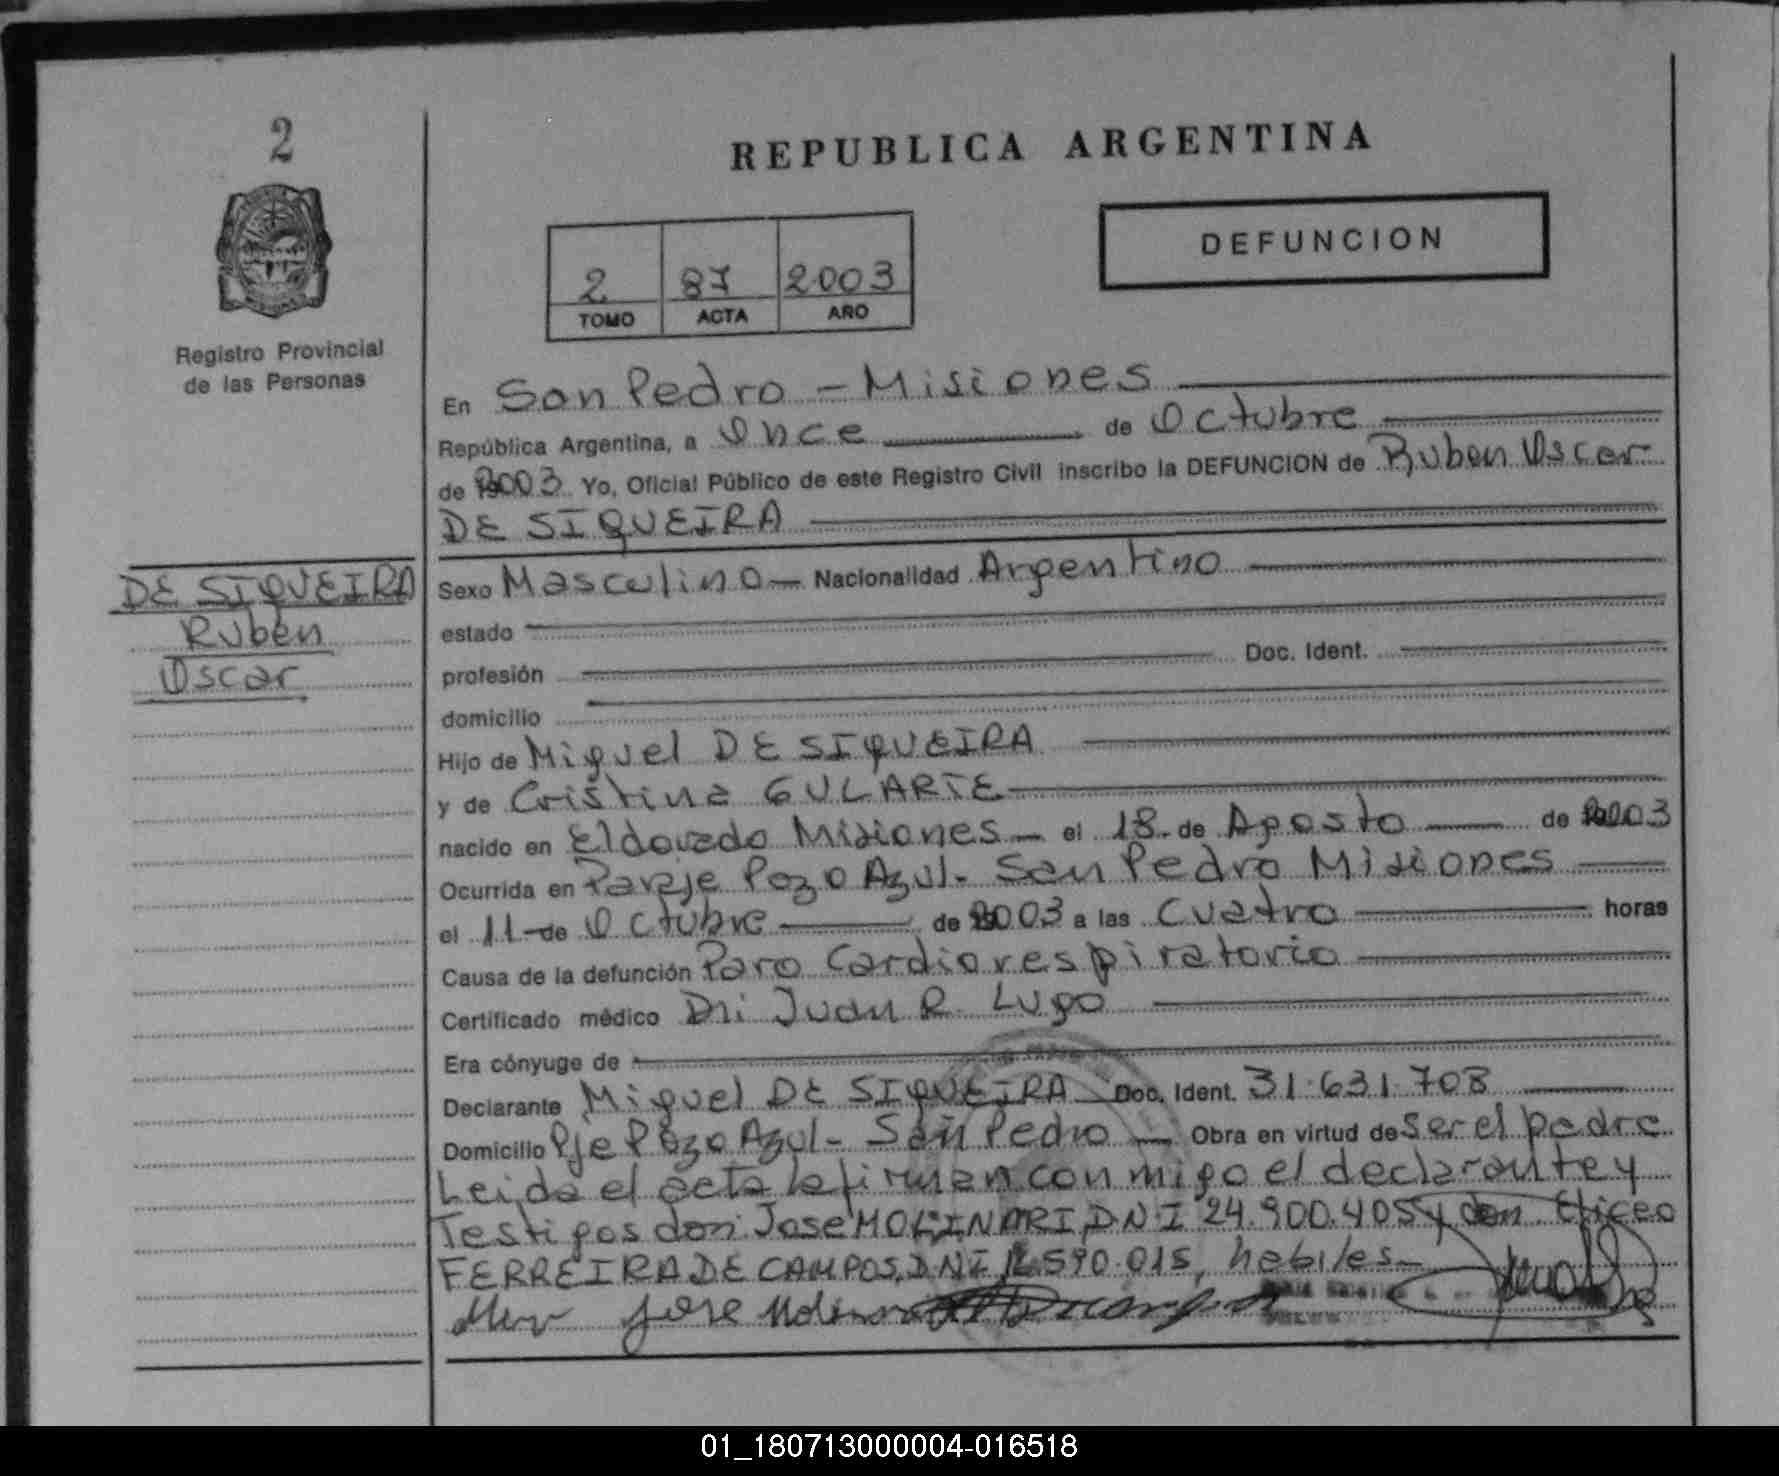 2
REPUBLICA ARGENTINA
DEFUNCION
2 87 2003
TOMO ACTA AÑO
Registro Provincial
de las Personas
En San Pedro - Misiones
República Argentina, a Once de Octubre
de 2003 Yo, Oficial Público de este Registro Civil inscribo la DEFUNCION de Ruben Oscar
DE SIQUEIRA
DE SIQUEIRA
Ruben
Oscar
Sexo Masculino - Nacionalidad Argentino
estado
profesión Doc. Ident.
domicilio
Hijo de Miguel DE SIQUEIRA
y de Cristina GULARTE
nacido en Eldorado Misiones - el 18 de Agosto de 2003
Ocurrida en Paraje Pozo Azul - San Pedro Misiones
el 11 de Octubre de 2003 a las Cuatro horas
Causa de la defunción Paro Cardiorespiratorio
Certificado médico Dr: Juan R. Lugo
Era cónyuge de
Declarante Miguel DE SIQUEIRA Doc. Ident. 31.631.708
Domicilio Pje Pozo Azul - San Pedro - Obra en virtud de ser el padre
Leida el acta la firman conmigo el declarante y
Testigos don: Jose MOLINARI, DNI 24.900.405 y don
FERREIRA DE CAMPOS, DNI 590.015, habiles -
Jose Molinari
01_180713000004-016518